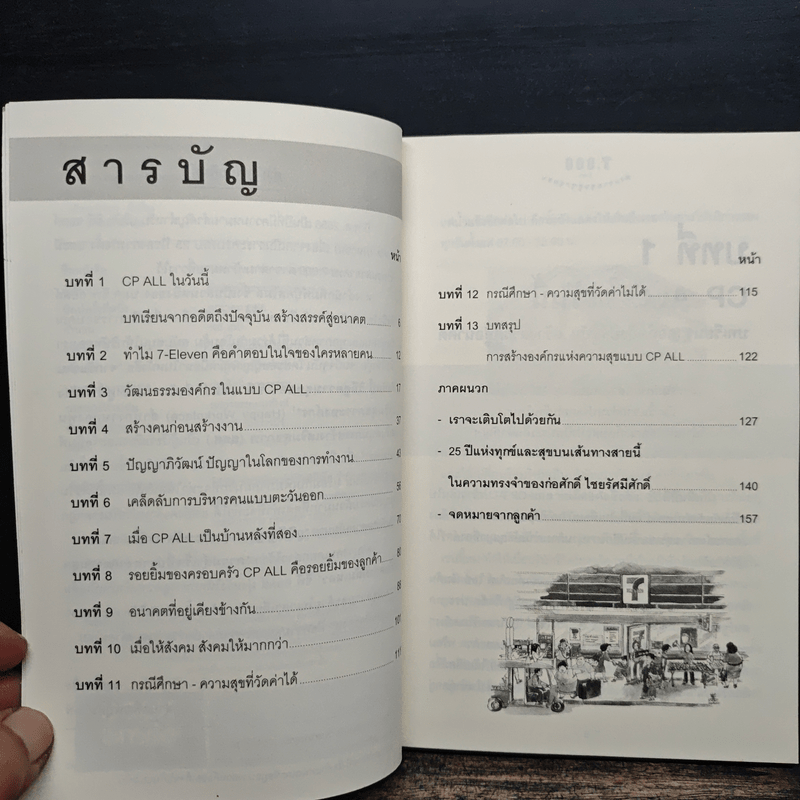 สารบัญ
หน้า
บทที่ 1 CP ALL ในวันนี้
บทเรียนจากอดีตถึงปัจจุบัน สร้างสรรค์สู่อนาคต 6
บทที่ 2 ทำไม 7-Eleven คือคำตอบในใจของใครหลายคน 12
บทที่ 3 วัฒนธรรมองค์กร ในแบบ CP ALL 17
บทที่ 4 สร้างคนก่อนสร้างงาน 37
บทที่ 5 ปัญญาภิวัฒน์ ปัญญาในโลกของการทำงาน 43
บทที่ 6 เคล็ดลับการบริหารคนแบบตะวันออก
บทที่ 7 เมื่อ CP ALL เป็นบ้านหลังที่สอง
บทที่ 8 รอยยิ้มของครอบครัว CP ALL คือรอยยิ้มของลูกค้า
บทที่ 9 อนาคตที่อยู่เคียงข้างกัน
บทที่ 10 เมื่อให้สังคม สังคมให้มากกว่า 101
บทที่ 11 กรณีศึกษา - ความสุขที่วัดค่าได้ 111
หน้า
บทที่ 12 กรณีศึกษา - ความสุขที่วัดค่าไม่ได้ 115
บทที่ 13 บทสรุป
การสร้างองค์กรแห่งความสุขแบบ CP ALL 122
ภาคผนวก
- เราจะเติบโตไปด้วยกัน 127
- 25 ปีแห่งทุกข์และสุขบนเส้นทางสายนี้
ในความทรงจำของก่อศักดิ์ ไชยรัศมีศักดิ์ 140
- จดหมายจากลูกค้า 157